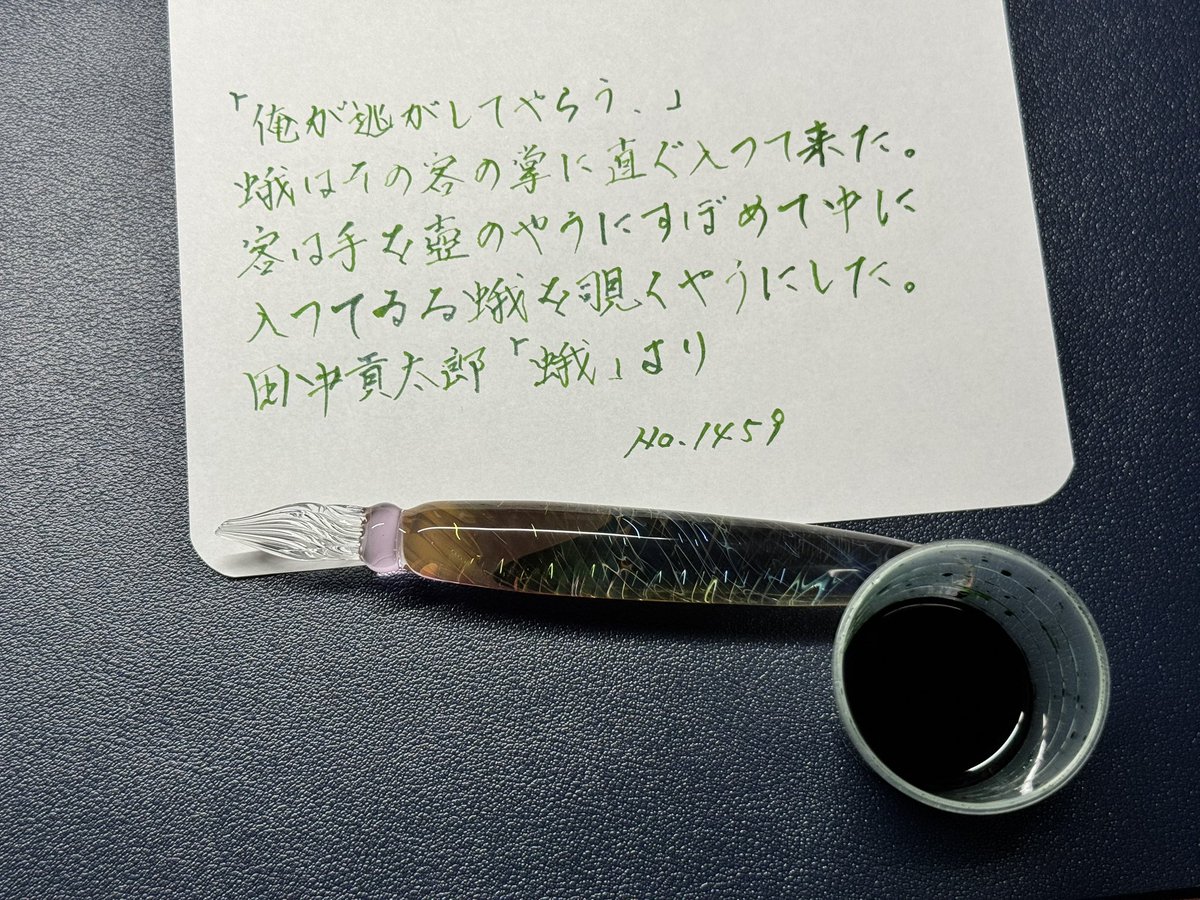 「俺が逃がしてやらう、」
蛾はその客の掌に直ぐ入つて来た。
客は手を壺のやうにすぼめて中に
入つてゐる蛾を覗くやうにした。
田中貢太郎「蛾」より
No.1459